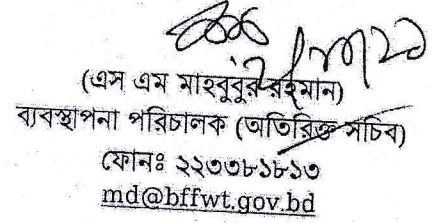 (এস এম মাহবুবুর রহমান)
ব্যবস্থাপনা পরিচালক (অতিরিক্ত সচিব)
ফোনঃ ২২৩৩৮১৮১৩
md@bffwt.gov.bd